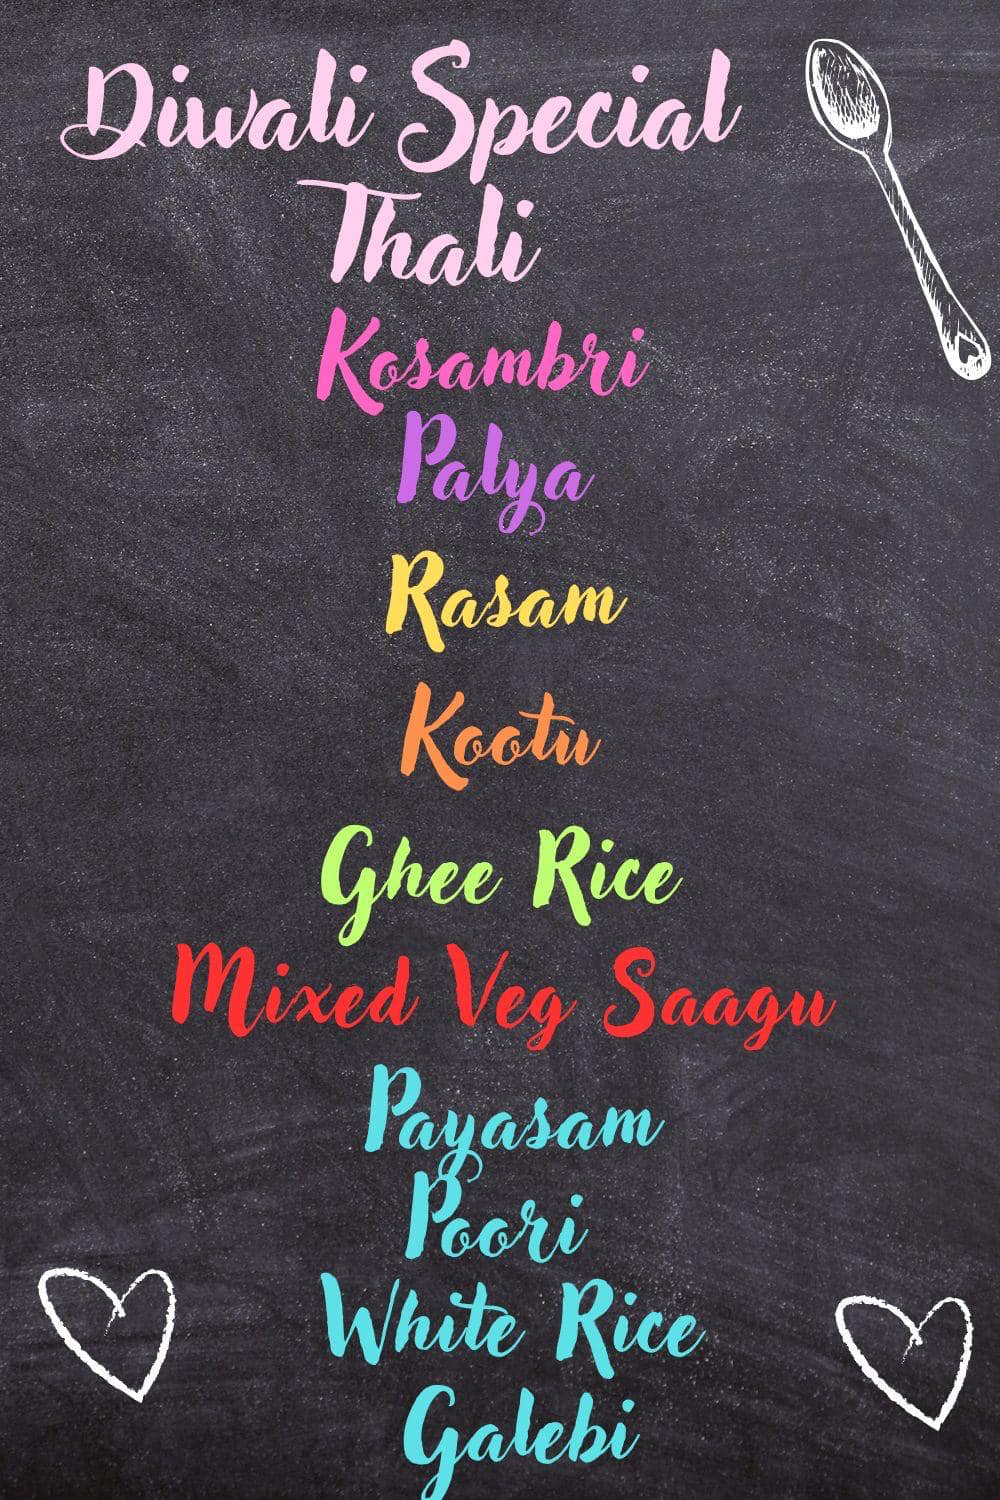 Diwali Special
Thali
Kosambri
Palya
Rasam
Kootu
Ghee Rice
Mixed Veg Saagu
Payasam
Poori
White Rice
Galebi